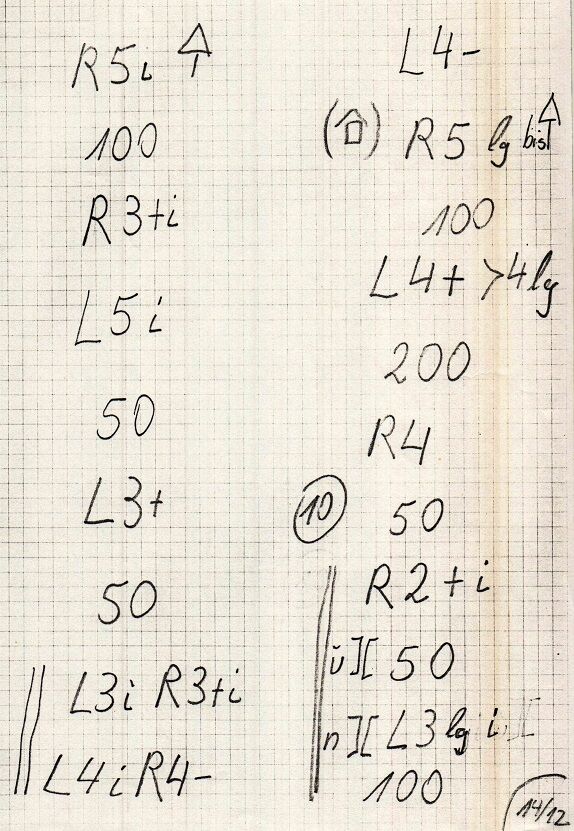 R5i
100
R3+i
L5i
50
L3+
50
L3i R3+i
L4iR4-
L4-
R5 lg bis
100
L4+ >4lg
200
R4
10
50
R2+i
ü][ 50
n][ L3 lg i
100
14/12